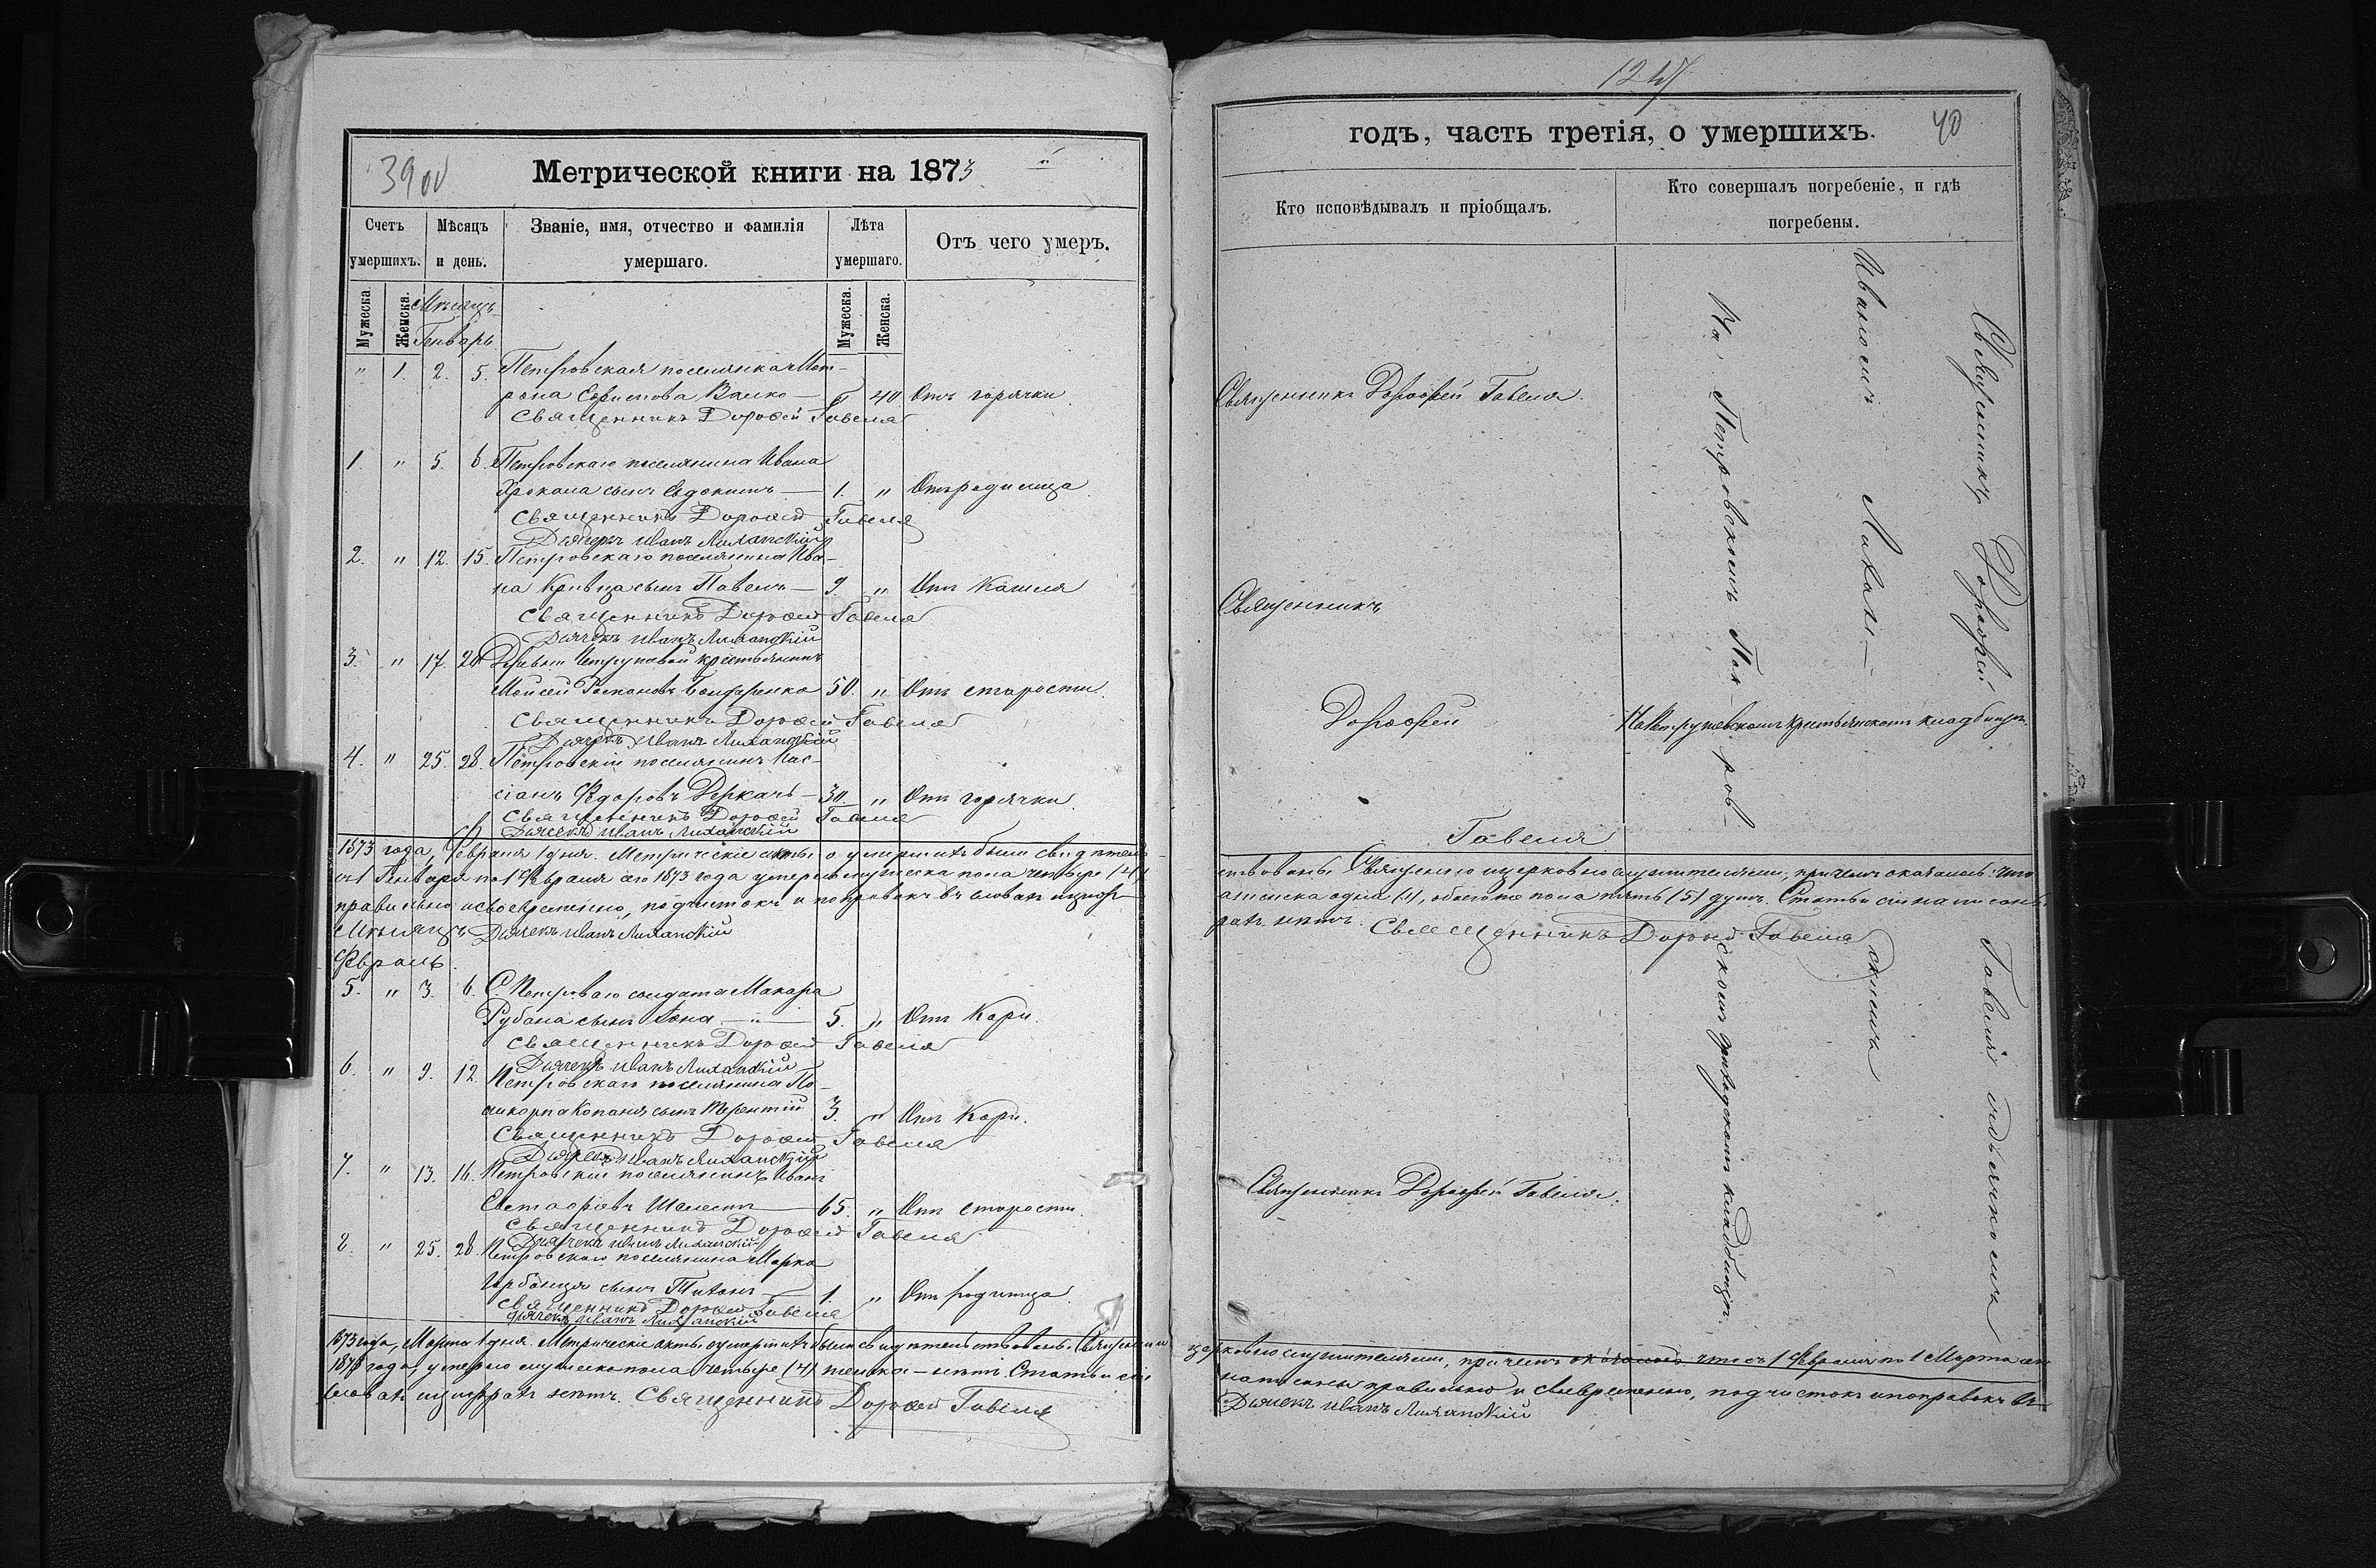 39 об
Метрической книги на 1873
Счетъ умершихъ.
Мѣсяцъ и день.
Званіе, имя, отчество и фамилія умершаго.
Лѣта умершаго.
Отъ чего умеръ.
Мужеска.
Женска.
Мужеска.
Женска.
Мѣсяцъ
Генварь
" 1. 2. 5. Петровская поселянка Мат-
рона Валко — " 40 Отъ горячки.
Священникъ Дорофей Гавеля
1. " 5. 6. Петровскаго поселянина Ивана
сынъ Евдокимъ — 1. " Отъ родимца
Священникъ Дорофей Гавеля
Дьячекъ Иванъ Лиханскій
2. " 12. 15. Петровскаго поселянина Ива-
на Кривца сынъ Павелъ — 9. " Отъ Кашля
Священникъ Дорофей Гавеля
Дьячекъ Иванъ Лиханскій
3. " 17. 20. Деревни крестьянинъ
Мойсей Бондаренко 50. " Отъ старости.
Священникъ Дорофей Гавеля
Дьячекъ Иванъ Лиханскій
4. " 25. 28. Петровскій поселянинъ Кас-
сіанъ Федоровъ Деркачъ — 30. " Отъ горячки.
Священникъ Дорофей Гавеля
Дьячекъ Иванъ Лиханскій
1873 года, Февраля 1 дня. Метрическіе акты о умершихъ были свидѣтель-
съ 1 Генваря по 1 Февраля сего 1873 года умерло мужеска пола четыре (4)
правильно и своевременно, подчистокъ и поправокъ въ словахъ и циф-
Мѣсяцъ Дьячекъ Иванъ Лиханскій
Февраль.
5. " 3. 6. С. Петроваго солдата Макара
Рубана сынъ — " — 5. " Отъ Кори.
Священникъ Дорофей Гавеля
Дьячекъ Иванъ Лиханскій
6. " 9. 12. Петровскаго поселянина По-
ликарпа Копаня сынъ Терентій 3. " Отъ Кори.
Священникъ Дорофей Гавеля
Дьячекъ Иванъ Лиханскій
7. " 13. 16. Петровскій поселянинъ Иванъ
Шелестъ — 65. " Отъ старости.
Священникъ Дорофей Гавеля
Дьячекъ Иванъ Лиханскій
8. " 25. 28. Петровскаго поселянина Марка
сынъ Титъ — 1. " Отъ родимца.
Священникъ Дорофей Гавеля
Дьячекъ Иванъ Лиханскій
1873 года, Марта 1 дня. Метрическіе акты о умершихъ были свидѣтельствованы Священно и
1873 года, умерло мужеска пола четыре (4) женска — нѣтъ. Статьи сіи
словахъ и цифрахъ нѣтъ. Священникъ Дорофей Гавеля
40
годъ, часть третія, о умершихъ.
Кто исповѣдывалъ и пріобщалъ.
Кто совершалъ погребеніе, и гдѣ погребены.
Священникъ Дорофей Гавеля.
Священникъ
Дорофей
Гавеля
Священникъ Дорофей Гавеля съ дьячкомъ
Иваномъ Лихан- скимъ
На Петровскомъ Пок- ров- скомъ приходскомъ кладбищѣ.
крестьянскомъ кладбищѣ.
ствованы Священно и церковно служителями, при чемъ оказалось: что
женска одна (1), обоего пола пять (5) душъ. Статьи сіи написаны
рахъ нѣтъ. Священникъ Дорофей Гавеля
Священникъ Дорофей Гавеля.
церковно служителями, при чемъ оказалось что съ 1 Февраля по 1 Марта сего
написаны правильно и своевременно, подчистокъ и поправокъ въ
Дьячекъ Иванъ Лиханскій